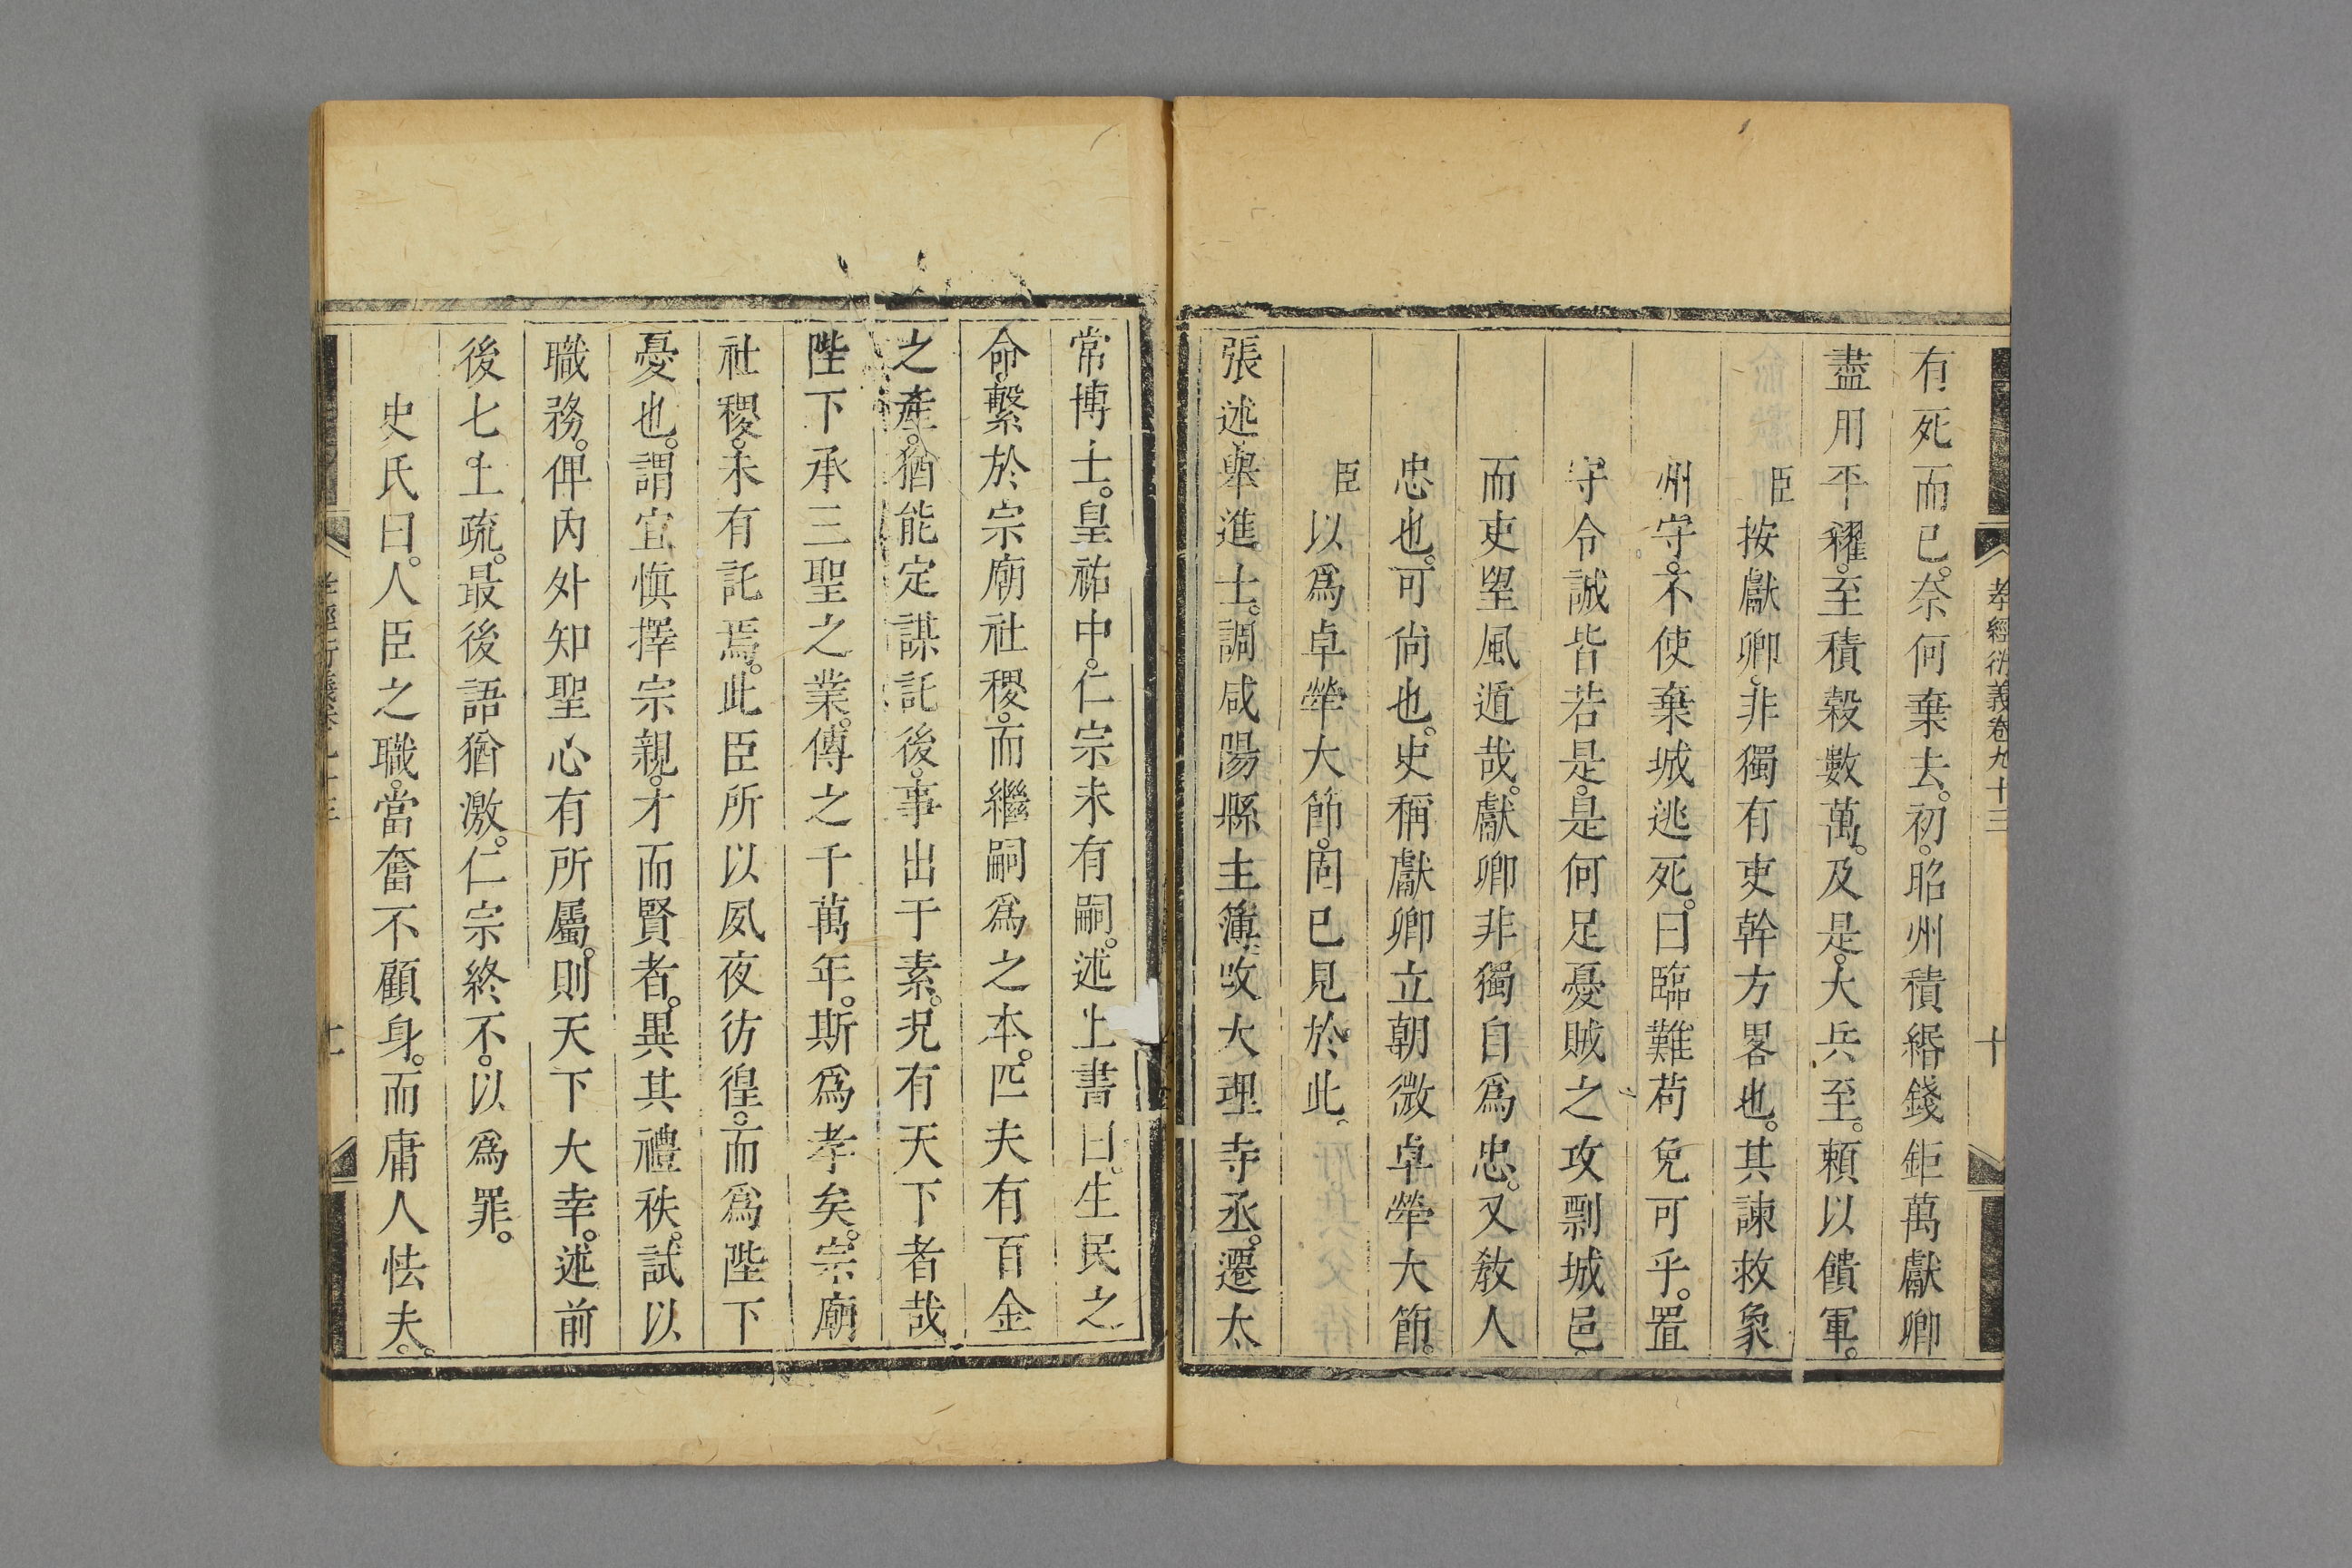 孝經衍義卷九十三
十
有死而已。奈何棄去。初。昭州積緡錢鉅萬獻卿
盡用平糴。至積穀數萬。及是。大兵至。賴以饋軍。
臣按獻卿。非獨有吏幹方畧也。其諫救象
州守。不使棄城逃死。曰臨難苟免可乎。置
守令誠皆若是。是何足憂賊之攻剽城邑。
而吏望風遁哉。獻卿非獨自爲忠。又敎人
忠也。可尙也。史稱獻卿立朝微卓犖大節。
臣以爲卓犖大節。固已見於此。
張述舉進士。調咸陽縣主簿改大理寺丞。遷太
常博士。皇祐中。仁宗未有嗣。述上書曰。生民之
命。繫於宗廟社稷。而繼嗣爲之本。匹夫有百金
之產。猶能定謀託後。事出于素。況有天下者哉
陛下承三聖之業。傳之千萬年。斯爲孝矣。宗廟
社稷。未有託焉。此臣所以夙夜彷徨。而爲陛下
憂也。謂宜愼擇宗親。才而賢者。異其禮秩。試以
職務。俾內外知聖心有所屬。則天下大幸。述前
後七上疏。最後語猶激。仁宗終不。以爲罪。
史氏曰。人臣之職。當奮不顧身。而庸人怯夫。